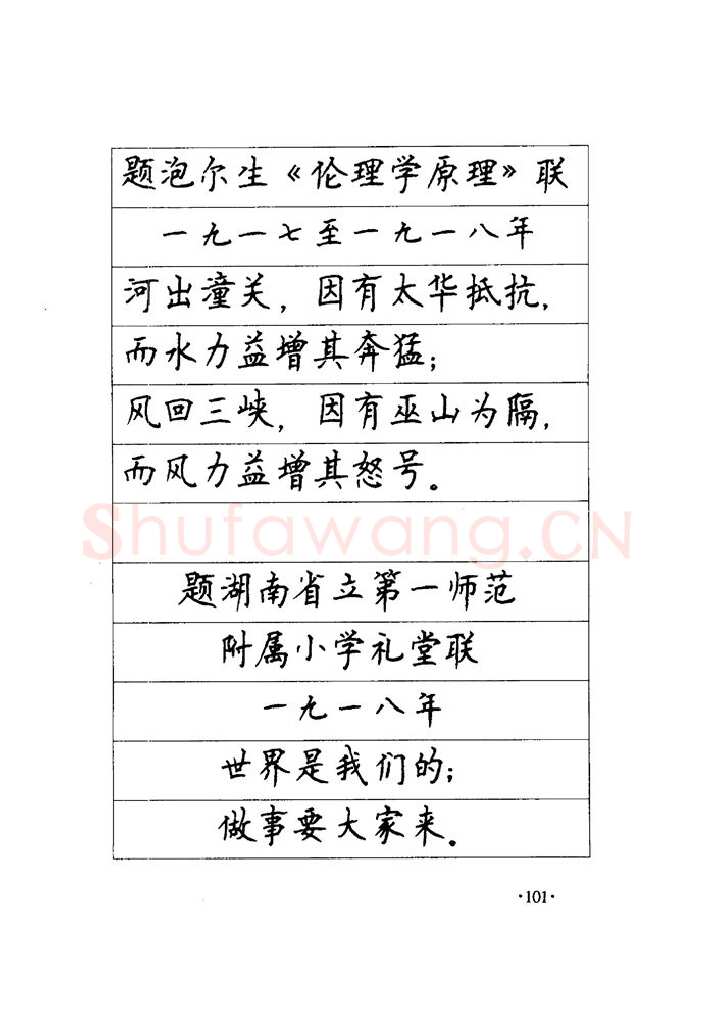 题泡尔生《伦理学原理》联
一九一七至一九一八年
河出潼关，因有太华抵抗，
而水力益增其奔猛；
风回三峡，因有巫山为隔，
而风力益增其怒号。
Shufawang.CN
题湖南省立第一师范
附属小学礼堂联
一九一八年
世界是我们的；
做事要大家来。
·101·